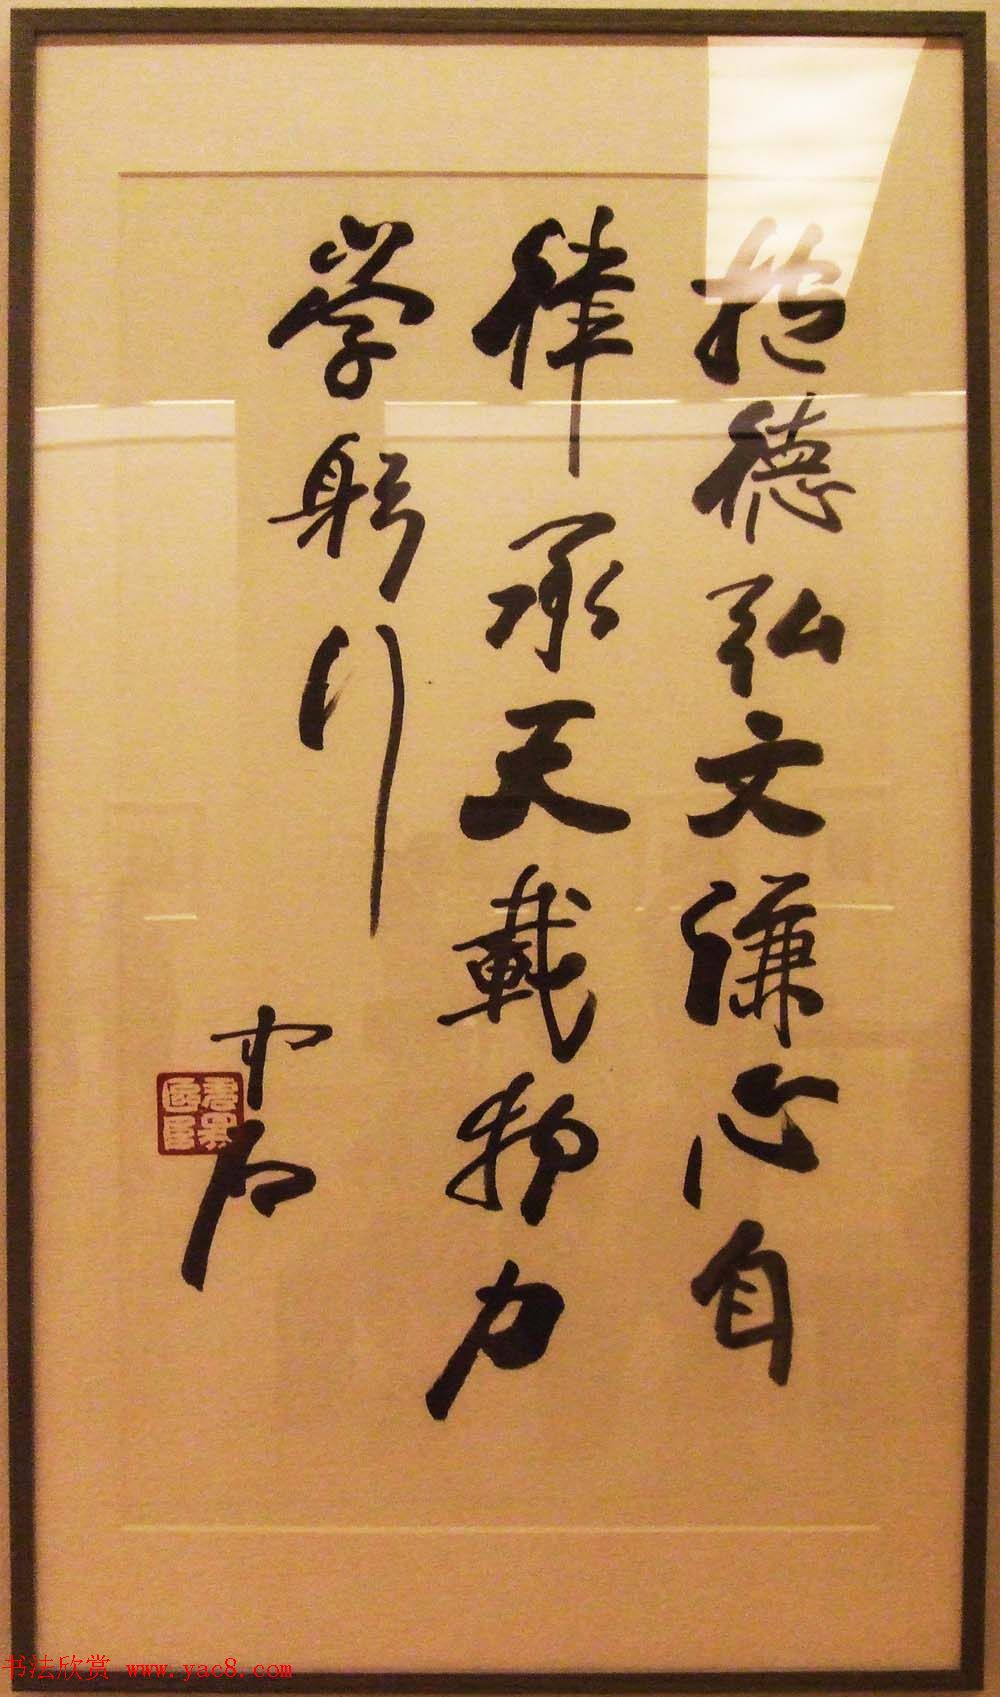 抱德弘文谦心自
律承天載物力
学躬行
书法欣赏 www.yac8.com